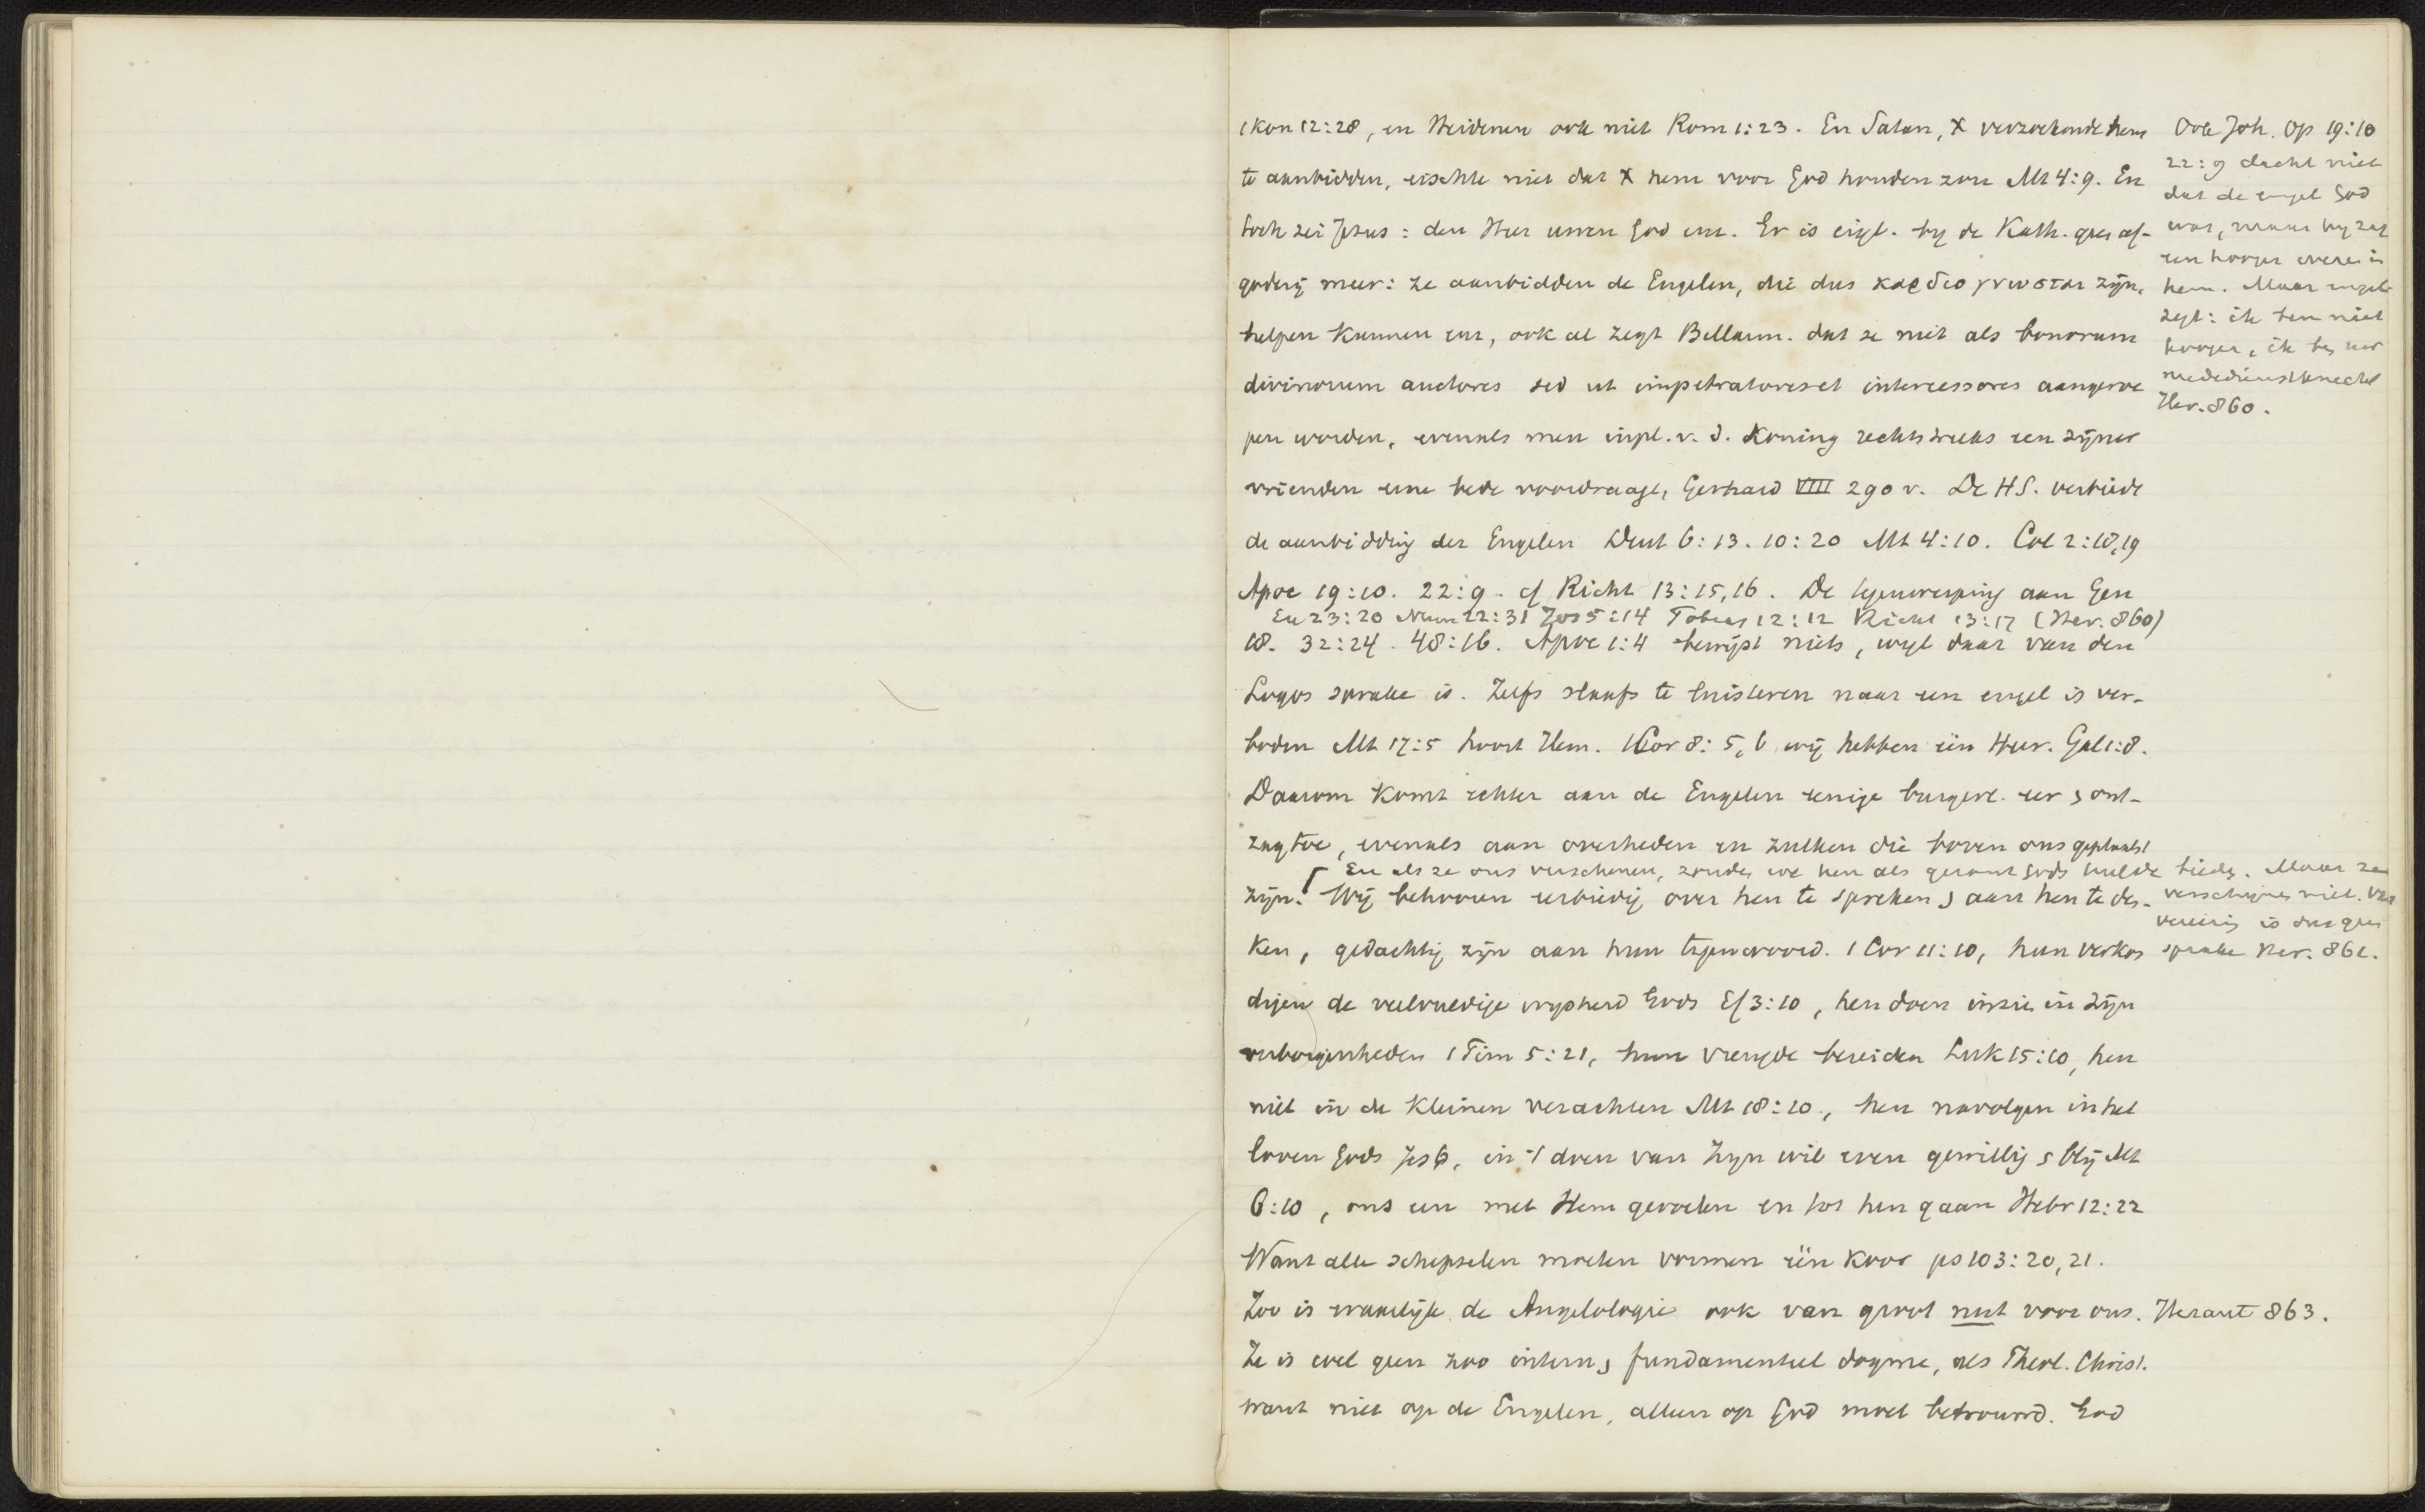 1 Kon 12:28, en Heidenen ook niet Rom 1:23. En Satan, X verzoekende hem
te aanbidden, eischte niet dat X hem voor God houden zou Mt 4:9. En
toch zei Jezus: den Heer uwen God enz. Er is eigl. bij de Kath. geen af-
goderij meer: ze aanbidden de Engelen, die dus καρδιογνωσται zijn,
helpen kunnen enz, ook al zegt Bellarm. dat ze niet als bonorum
divinorum auctores sed ut impetratores et intercessores aangeroe
pen worden, evenals men inpl. v. d. Koning rechtstreeks een zijner
vrienden eene bede voordraagt, Gerhard VIII 290 v. De H S. verbiedt
de aanbidding der Engelen Deut 6:13. 10:20 Mt 4:10. Col 2:18,19
Apoc 19:10. 22:9. cf Richt 13:15,16. De tegenwerping aan Gen
Ex 23:20 Num 22:31 Joz 5:14 Tobias 12:12 Richt 13:17 (Her. 860)
18. 32:24. 48:16. Apoc 1:4 bewijst niets, wijl daar van den
Logos sprake is. Zelfs slaafs te luisteren naar een engel is ver-
boden Mt 17:5 hoort Hem. 1 Cor 8:5,6 wij hebben één Heer. Gal 1:8.
Daarom komt echter aan de Engelen eenige burgerl. eer en ont-
zag toe, evenals aan overheden en zulken die boven ons geplaatst
[ En als ze ons verschenen, zouden we hen als gezant Gods hulde bieden. Maar ze
zijn. Wij behooren eerbiedig over hen te spreken en aan hen te den-
ken, gedachtig zijn aan hun tegenwoord. 1 Cor 11:10, hun verkon
digen de veelvuldige wijsheid Gods Ef 3:10, hen doen inzien in zijn
verborgenheden 1 Tim 5:21, hun vreugde bereiden Luk 15:10, hen
niet in de kleinen verachten Mt 18:10, hen navolgen in het
loven Gods Jes 6, in 't doen van Zijn wil even gewillig en blij Mt
6:10, ons een met Hem gevoelen en tot hen gaan Hebr 12:22
Want alle schepselen moeten vormen één koor ps 103:20,21.
Zoo is waarlijk de Angelologie ook van groot nut voor ons. Heraut 863.
Ze is wel geen zoo intern en fundamenteel dogme, als Theol. Christ.
want niet op de Engelen, alleen op God moet betrouwd. God
Ook Joh. Op 19:10
22:9 dacht niet
dat de engel God
was, maar hij zag
een hooger wezen in
hem. Maar engel
zegt: ik ben niet
hooger, ik ben uw
mededienstknecht
Her. 860.
verschijnen niet. Van
vereering is dus geen
sprake Her. 861.